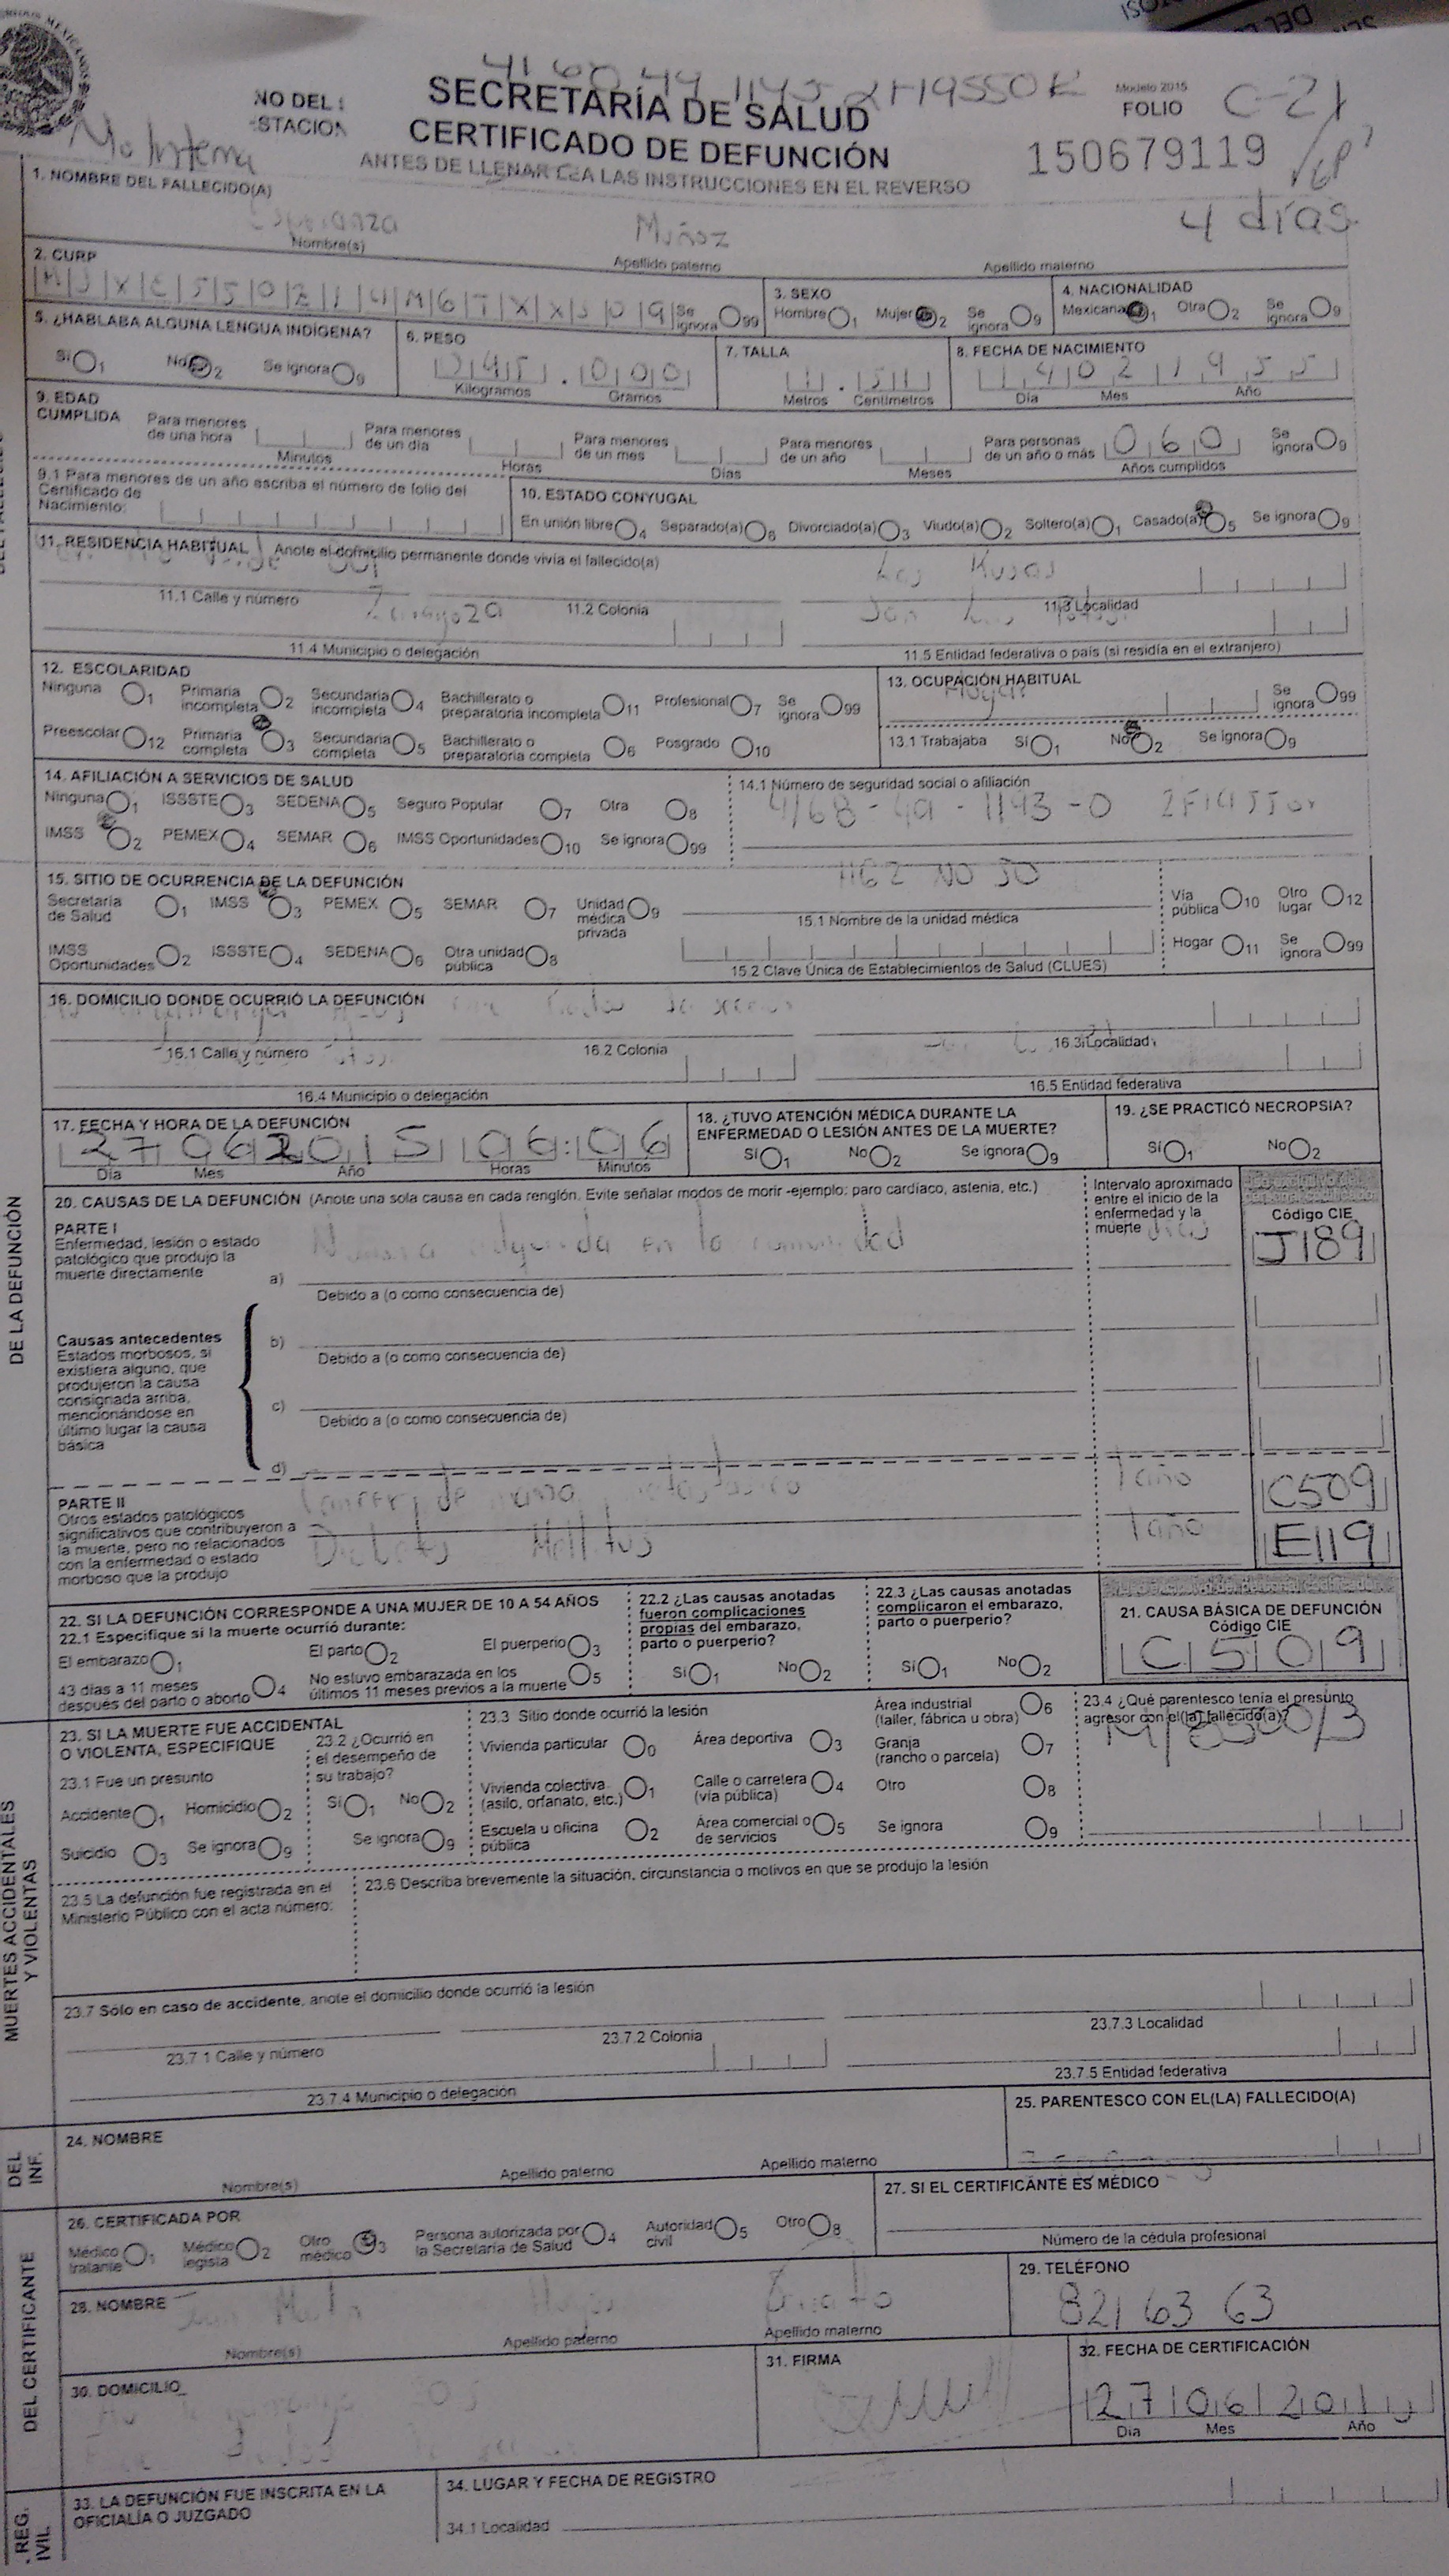 SECRETARÍA DE SALUD
CERTIFICADO DE DEFUNCIÓN
ANTES DE LLENAR LEA LAS INSTRUCCIONES EN EL REVERSO
Modelo 2015
FOLIO C-21
150679119
4 días
NO DEL
STACION
1. NOMBRE DEL FALLECIDO(A)
Esperanza Muñoz
Nombre(s) Apellido paterno Apellido materno
2. CURP
Se ignora 99
3. SEXO
Hombre 1 Mujer 2 Se ignora 9
4. NACIONALIDAD
Mexicana 1 Otra 2 Se ignora 9
5. ¿HABLABA ALGUNA LENGUA INDÍGENA?
Sí 1 No 2 Se ignora 9
6. PESO
045 . 000
Kilogramos Gramos
7. TALLA
1 . 51
Metros Centímetros
8. FECHA DE NACIMIENTO
14 02 1955
Día Mes Año
9. EDAD CUMPLIDA
Para menores de una hora Minutos
Para menores de un día Horas
Para menores de un mes Días
Para menores de un año Meses
Para personas de un año o más 060 Años cumplidos
Se ignora 9
9.1 Para menores de un año escriba el número de folio del Certificado de Nacimiento:
10. ESTADO CONYUGAL
En unión libre 4 Separado(a) 6 Divorciado(a) 3 Viudo(a) 2 Soltero(a) 1 Casado(a) 5 Se ignora 9
11. RESIDENCIA HABITUAL Anote el domicilio permanente donde vivía el fallecido(a)
11.1 Calle y número 11.2 Colonia 11.3 Localidad
Zaragoza San Luis Potosí
11.4 Municipio o delegación 11.5 Entidad federativa o país (si residía en el extranjero)
12. ESCOLARIDAD
Ninguna 1 Primaria incompleta 2 Secundaria incompleta 4 Bachillerato o preparatoria incompleta 11 Profesional 7 Se ignora 99
Preescolar 12 Primaria completa 3 Secundaria completa 5 Bachillerato o preparatoria completa 6 Posgrado 10
13. OCUPACIÓN HABITUAL
Hogar
Se ignora 99
13.1 Trabajaba Sí 1 No 2 Se ignora 9
14. AFILIACIÓN A SERVICIOS DE SALUD
Ninguna 1 ISSSTE 3 SEDENA 5 Seguro Popular 7 Otra 8
IMSS 2 PEMEX 4 SEMAR 6 IMSS Oportunidades 10 Se ignora 99
14.1 Número de seguridad social o afiliación
15. SITIO DE OCURRENCIA DE LA DEFUNCIÓN
Secretaría de Salud 1 IMSS 3 PEMEX 5 SEMAR 7 Unidad médica privada 9
IMSS Oportunidades 2 ISSSTE 4 SEDENA 6 Otra unidad pública 8
HGZ NO 50
15.1 Nombre de la unidad médica
15.2 Clave Única de Establecimientos de Salud (CLUES)
Vía pública 10 Otro lugar 12
Hogar 11 Se ignora 99
16. DOMICILIO DONDE OCURRIÓ LA DEFUNCIÓN
16.1 Calle y número 16.2 Colonia 16.3 Localidad
16.4 Municipio o delegación 16.5 Entidad federativa
17. FECHA Y HORA DE LA DEFUNCIÓN
27 06 2015 06:06
Día Mes Año Horas Minutos
18. ¿TUVO ATENCIÓN MÉDICA DURANTE LA ENFERMEDAD O LESIÓN ANTES DE LA MUERTE?
Sí 1 No 2 Se ignora 9
19. ¿SE PRACTICÓ NECROPSIA?
Sí 1 No 2
20. CAUSAS DE LA DEFUNCIÓN (Anote una sola causa en cada renglón. Evite señalar modos de morir -ejemplo: paro cardíaco, astenia, etc.)
Intervalo aproximado entre el inicio de la enfermedad y la muerte
Código CIE
PARTE I
Enfermedad, lesión o estado patológico que produjo la muerte directamente
a) adquirida en la comunidad J189
Debido a (o como consecuencia de)
Causas antecedentes
Estados morbosos, si existiera alguno, que produjeron la causa consignada arriba, mencionándose en último lugar la causa básica
b)
Debido a (o como consecuencia de)
c)
Debido a (o como consecuencia de)
d)
PARTE II
Otros estados patológicos significativos que contribuyeron a la muerte, pero no relacionados con la enfermedad o estado morboso que la produjo
Cancer de mama metastasico 1 año C509
Diabetes Mellitus 1 año E119
21. CAUSA BÁSICA DE DEFUNCIÓN
Código CIE
C509
22. SI LA DEFUNCIÓN CORRESPONDE A UNA MUJER DE 10 A 54 AÑOS
22.1 Especifique si la muerte ocurrió durante:
El embarazo 1 El parto 2 El puerperio 3
43 días a 11 meses después del parto o aborto 4 No estuvo embarazada en los últimos 11 meses previos a la muerte 5
22.2 ¿Las causas anotadas fueron complicaciones propias del embarazo, parto o puerperio?
Sí 1 No 2
22.3 ¿Las causas anotadas complicaron el embarazo, parto o puerperio?
Sí 1 No 2
23. SI LA MUERTE FUE ACCIDENTAL O VIOLENTA, ESPECIFIQUE
23.1 Fue un presunto
Accidente 1 Homicidio 2
Suicidio 3 Se ignora 9
23.2 ¿Ocurrió en el desempeño de su trabajo?
Sí 1 No 2
Se ignora 9
23.3 Sitio donde ocurrió la lesión
Vivienda particular 0 Área deportiva 3 Área industrial (taller, fábrica u obra) 6
Vivienda colectiva (asilo, orfanato, etc.) 1 Calle o carretera (vía pública) 4 Granja (rancho o parcela) 7
Escuela u oficina pública 2 Área comercial o de servicios 5 Otro 8
Se ignora 9
23.4 ¿Qué parentesco tenía el presunto agresor con el(la) fallecido(a)?
23.5 La defunción fue registrada en el Ministerio Público con el acta número:
23.6 Describa brevemente la situación, circunstancia o motivos en que se produjo la lesión
23.7 Sólo en caso de accidente, anote el domicilio donde ocurrió la lesión
23.7.1 Calle y número 23.7.2 Colonia 23.7.3 Localidad
23.7.4 Municipio o delegación 23.7.5 Entidad federativa
24. NOMBRE
Nombre(s) Apellido paterno Apellido materno
25. PARENTESCO CON EL(LA) FALLECIDO(A)
26. CERTIFICADA POR
Médico tratante 1 Médico legista 2 Otro médico 3 Persona autorizada por la Secretaría de Salud 4 Autoridad civil 5 Otro 8
27. SI EL CERTIFICANTE ES MÉDICO
Número de la cédula profesional
28. NOMBRE
Nombre(s) Apellido paterno Apellido materno
29. TELÉFONO
821 63 63
30. DOMICILIO
31. FIRMA
32. FECHA DE CERTIFICACIÓN
27 06 201
Día Mes Año
33. LA DEFUNCIÓN FUE INSCRITA EN LA OFICIALÍA O JUZGADO
34. LUGAR Y FECHA DE REGISTRO
34.1 Localidad
DE LA DEFUNCIÓN
MUERTES ACCIDENTALES Y VIOLENTAS
DEL INF.
DEL CERTIFICANTE
REG. IVIL